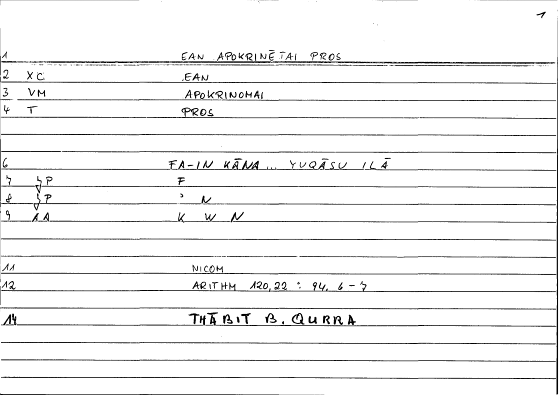 1
1 EAN APOKRINĒTAI PROS
2 XC EAN
3 VM APOKRINOMAI
4 T PROS
6 FA-IN KĀNA... YUQĀSU ILĀ
7 P F
8 P ʾ N
9 AA K W N
11 NICOM
12 ARITHM 120,22 : 94, 6-7
14 THĀBIT B. QURRA